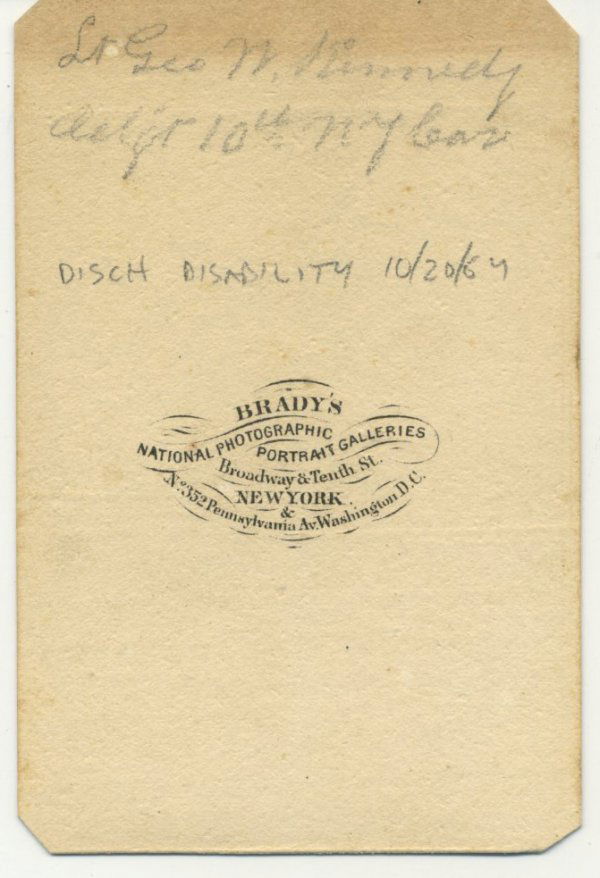 Lt Geo W. Kennedy
Adj't 10th N Y Cav
DISCH DISABILITY 10/20/64
BRADY'S
NATIONAL PHOTOGRAPHIC
PORTRAIT GALLERIES
Broadway & Tenth St.
NEW YORK
&
No. 352 Pennsylvania Av. Washington D.C.